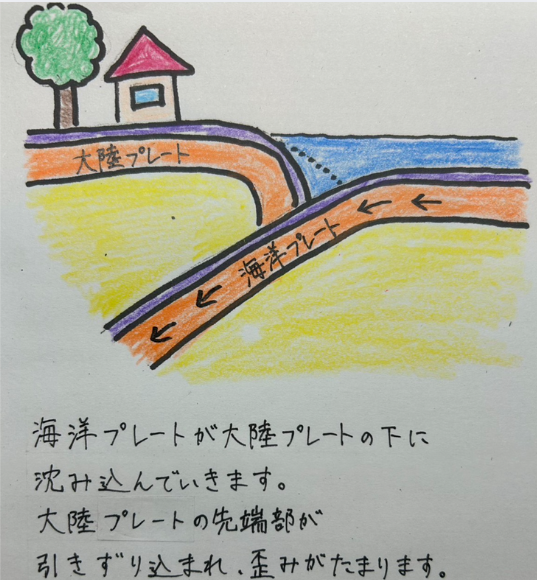 大陸プレート
海洋プレート
海洋プレートが大陸プレートの下に
沈み込んでいきます。
大陸プレートの先端部が
引きずり込まれ、歪みがたまります。